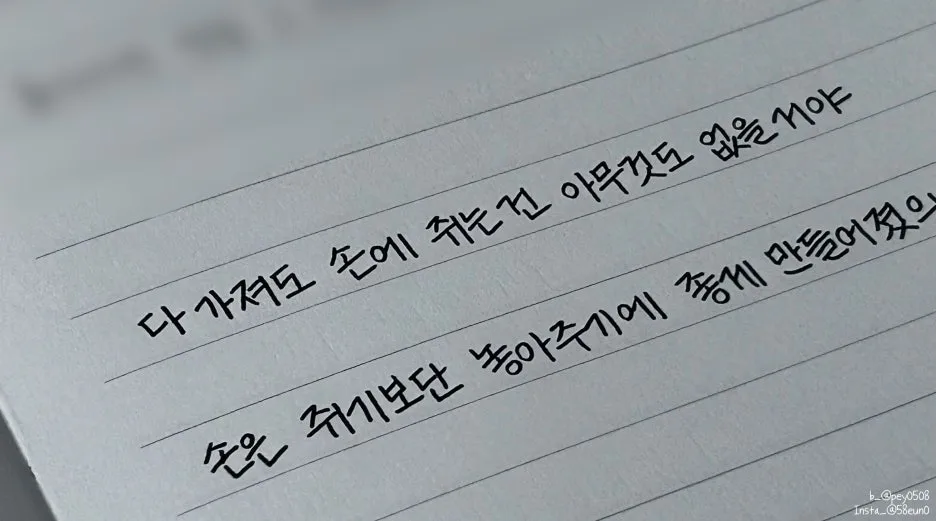 다 가져도 손에 쥐는건 아무것도 없을거야
손은 쥐기보단 놓아주기에 좋게 만들어졌으
b_@pey0508
Insta_@58eun0